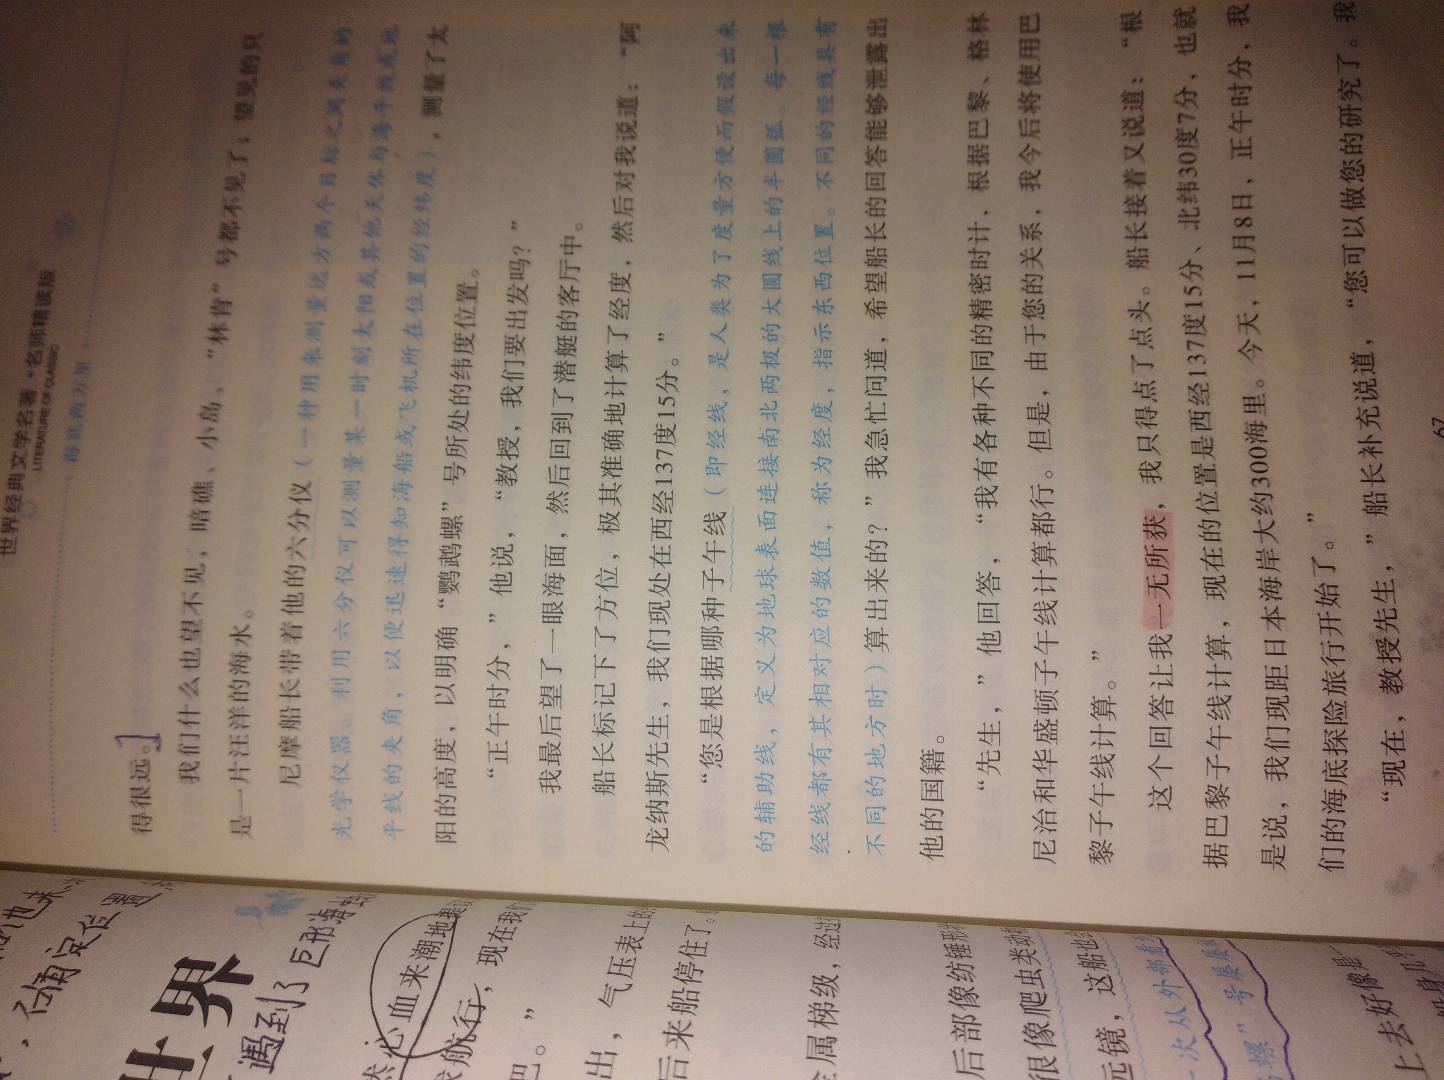 世界经典文学名著•名师精读版
LITERATURE OF CLASSIC
海底两万里
得很远。
我们什么也望不见，暗礁、小岛、“林肯”号都不见了；望见的只
是一片汪洋的海水。
尼摩船长带着他的六分仪（一种用来测量远方两个目标之间夹角的
光学仪器。利用六分仪可以测量某一时刻太阳或其他天体与海平线或地
平线的夹角，以便迅速得知海船或飞机所在位置的经纬度），测量了太
阳的高度，以明确“鹦鹉螺”号所处的纬度位置。
“正午时分，”他说，“教授，我们要出发吗？”
我最后望了一眼海面，然后回到了潜艇的客厅中。
船长标记下了方位，极其准确地计算了经度，然后对我说道：“阿
龙纳斯先生，我们现处在西经137度15分。”
“您是根据哪种子午线（即经线，是人类为了度量方便而假设出来
的辅助线，定义为地球表面连接南北两极的大圆线上的半圆弧。每一根
经线都有其相对应的数值，称为经度，指示东西位置。不同的经线具有
不同的地方时）算出来的？”我急忙问道，希望船长的回答能够泄露出
他的国籍。
“先生，”他回答，“我有各种不同的精密时计，根据巴黎、格林
尼治和华盛顿子午线计算都行。但是，由于您的关系，我今后将使用巴
黎子午线计算。”
这个回答让我一无所获，我只得点了点头。船长接着又说道：“根
据巴黎子午线计算，现在的位置是西经137度15分、北纬30度7分，也就
是说，我们现距日本海岸大约300海里。今天，11月8日，正午时分，我
们的海底探险旅行开始了。”
“现在，教授先生，”船长补充说道，“您可以做您的研究了。我
67
定位置
世界
遇到了巨形海
心血来潮地
航行，现在我们
吧。”
出，气压表上的
后来船停住了。
金属梯级，经过
后部像纺锤形
很像爬虫类动
远镜，这船也
一次从外部
螺”号
上去好像是